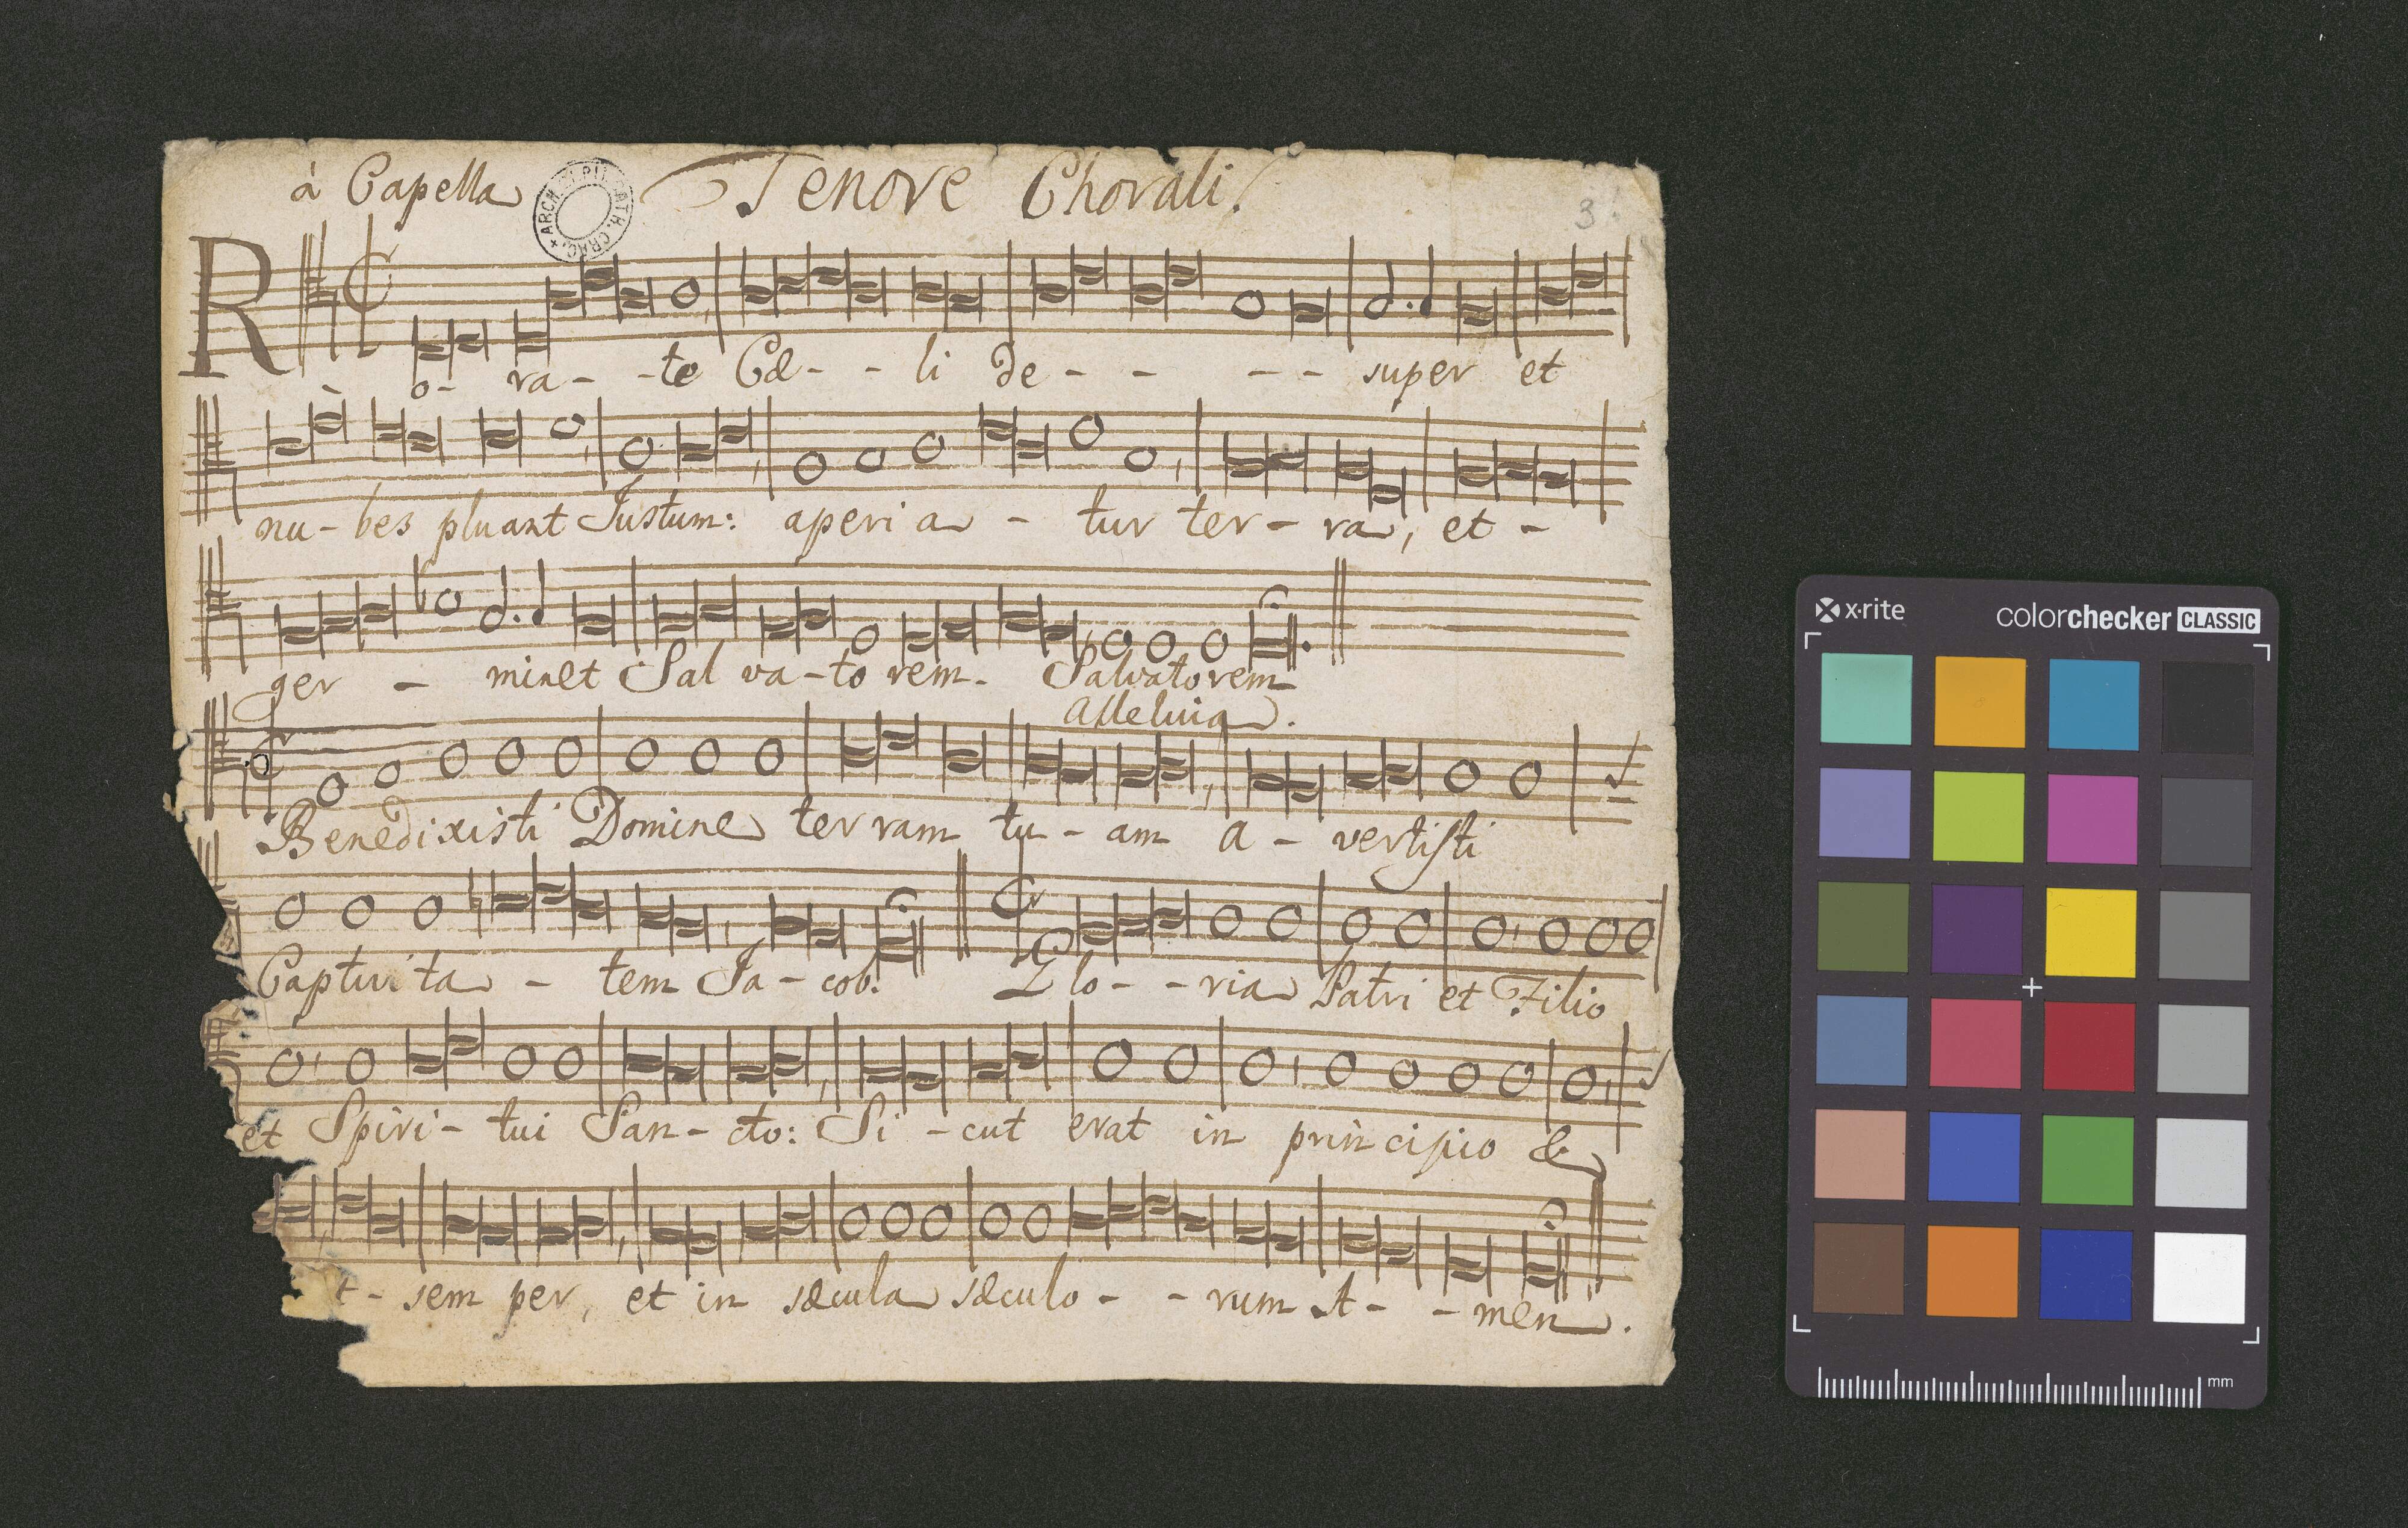 à Capella Tenore Chorali.
3.
R o- ra- -te Cæ- - li de- - - - super et
nu-bes pluant Justum: aperi a - tur ter- ra, et -
ger - minet Sal va-to rem. Salvatorem
Alleluia.
Benedixisti Domine ter ram tu - am a - vertisti
Captivita - tem Ja - cob. Glo- -ria Patri et Filio
et Spiri- tui San- cto: Si -cut erat in principio &
t- sem per, et in sæcula sæculo- - rum A- -men.
x·rite colorchecker CLASSIC
mm